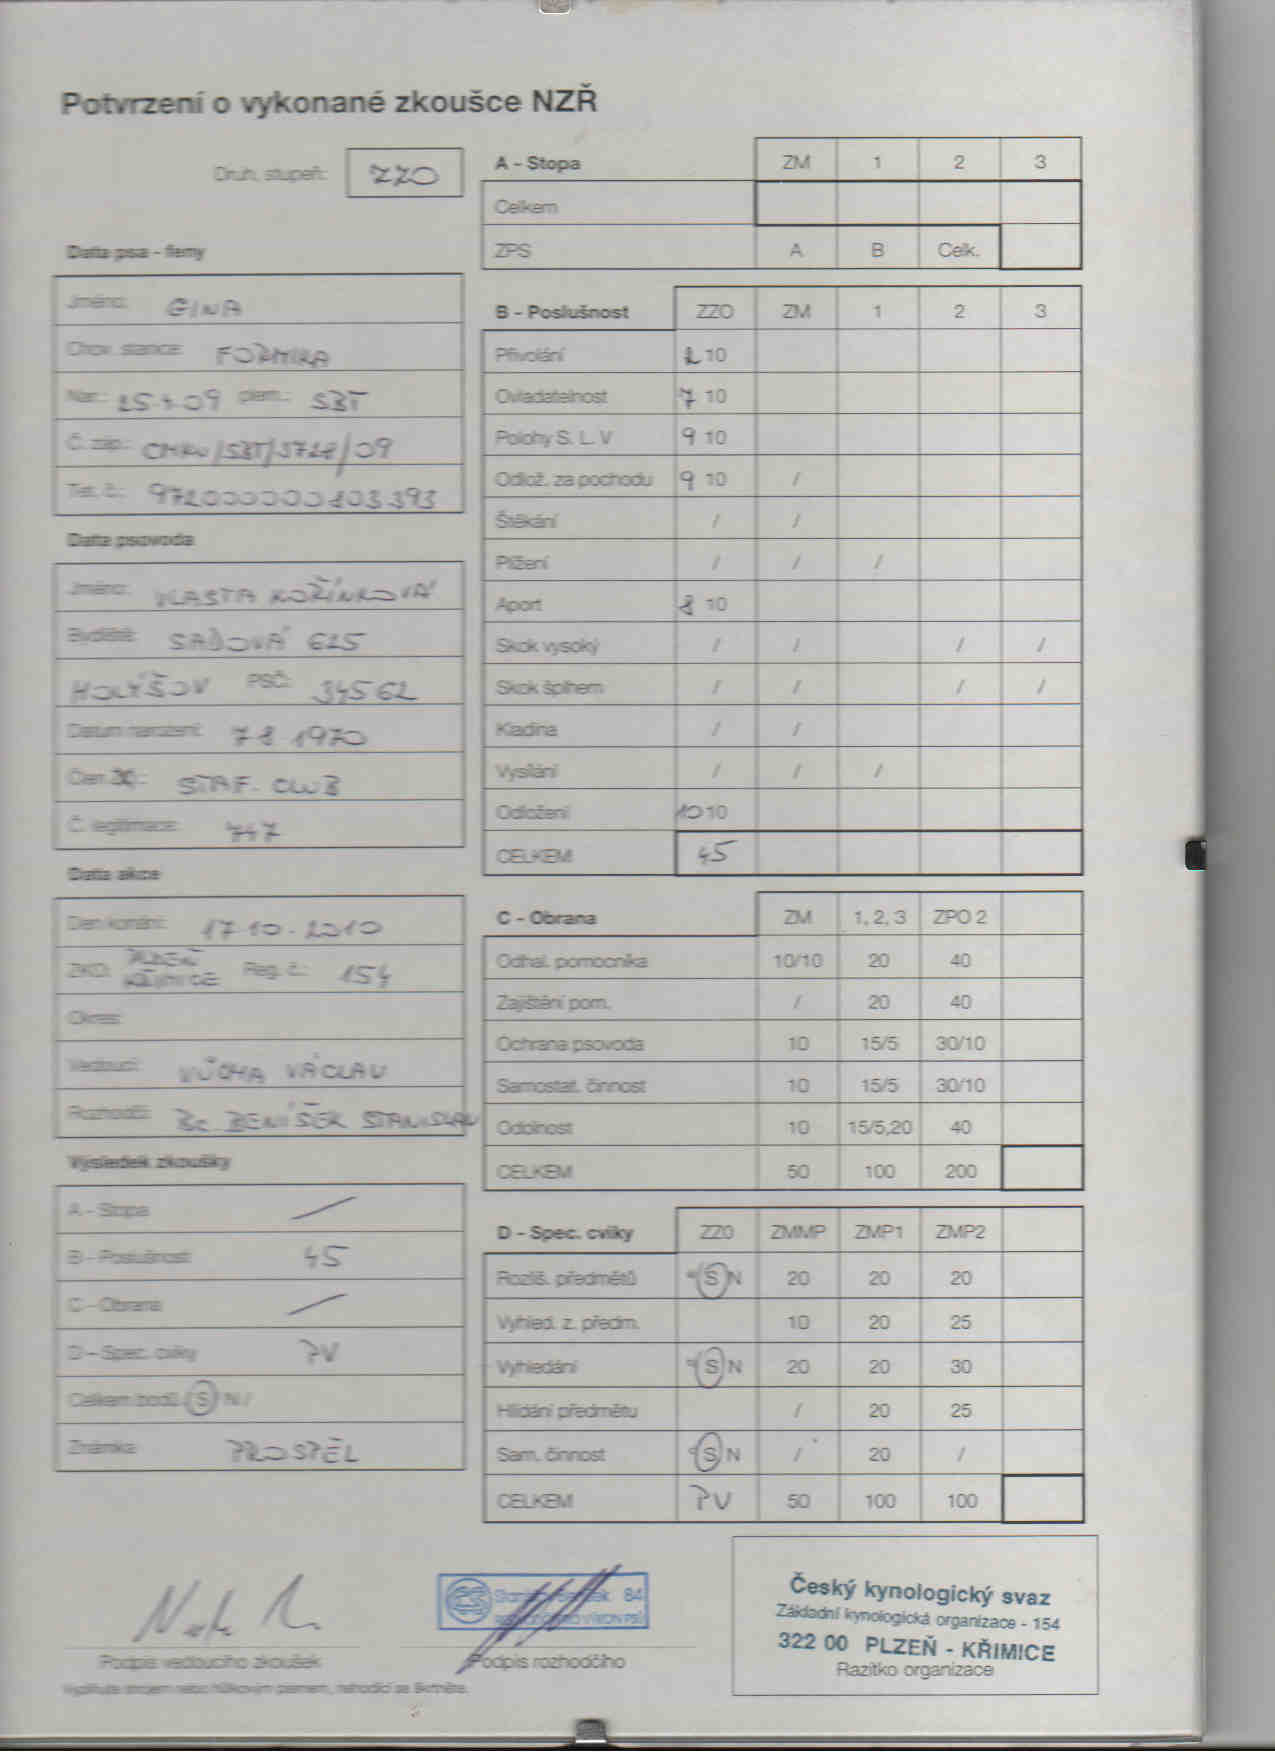 Potvrzení o vykonané zkoušce NZŘ
Druh, stupeň: ZZO
Data psa - feny
Jméno: GINA
Chov. stanice: FORMIRA
Nar.: plem.: SBT
Č. záp.: CMKU/SBT/3728/09
Tet. č.: 972000000103393
Data psovoda
Jméno: VLASTA KOŘÍNKOVÁ
Bydliště: SADOVÁ 625
HOLÝŠOV PSČ: 34562
Datum narození: 7 8 1970
Člen STAF. CLUB
Č. legitimace: 747
Data akce
Den konání: 17 10. 2010
ZKO: PLZEŇ KŘIMICE Reg. č.: 154
Okres:
Vedoucí: VÁCLAV
Rozhodčí: Bc BENÍŠEK STANISLAV
Výsledek zkoušky
A - Stopa /
B - Poslušnost 45
C - Obrana /
D - Spec. cviky PV
Celkem bodů / S N /
Známka PROSPĚL
A - Stopa ZM 1 2 3
Celkem
ZPS A B Celk.
B - Poslušnost ZZO ZM 1 2 3
Přivolání 2 10
Ovladatelnost 7 10
Polohy S. L. V 9 10
Odlož. za pochodu 9 10 /
Štěkání / /
Plížení / / /
Aport 8 10
Skok vysoký / / / /
Skok šplhem / / / /
Kladina / /
Vysílání / / /
Odložení 10 10
CELKEM 45
C - Obrana ZM 1, 2, 3 ZPO 2
Odhal. pomocníka 10/10 20 40
Zajištění pom. / 20 40
Ochrana psovoda 10 15/5 30/10
Samostat. činnost 10 15/5 30/10
Odolnost 10 15/5,20 40
CELKEM 50 100 200
D - Spec. cviky ZZO ZMMP ZMP1 ZMP2
Rozliš. předmětů S N 20 20 20
Vyhled. z. předm. 10 20 25
Vyhledání S N 20 20 30
Hlídání předmětu / 20 25
Sam. činnost S N / 20 /
CELKEM PV 50 100 100
84
Podpis vedoucího zkoušek
Podpis rozhodčího
Vyplňujte strojem nebo hůlkovým písmem, nehodící se škrtněte.
Český kynologický svaz
Základní kynologická organizace - 154
322 00 PLZEŇ - KŘIMICE
Razítko organizace